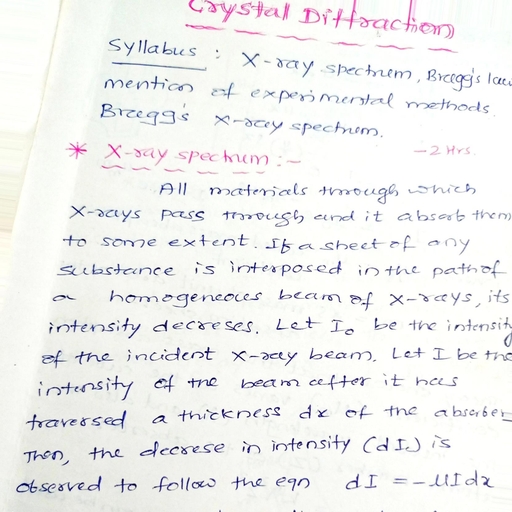 Crystal Diffraction
Syllabus : X-ray spectrum, Bragg's law
mention of experimental methods.
Bragg's X-ray spectrum.
-2 Hrs.
* X-ray spectrum :-
All materials through which
X-rays pass through and it absorb them
to some extent. If a sheet of any
substance is interposed in the path of
a homogeneous beam of X-rays, its
intensity decreses. Let I₀ be the intensity
of the incident X-ray beam. Let I be the
intensity of the beam after it has
traversed a thickness dx of the absorber
Then, the decrese in intensity (dI) is
observed to follow the eqn dI = -μIdx